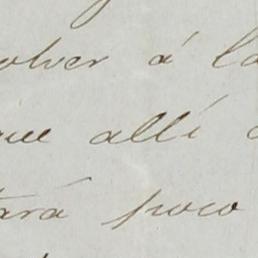 olver á la
ue allí
tará poco